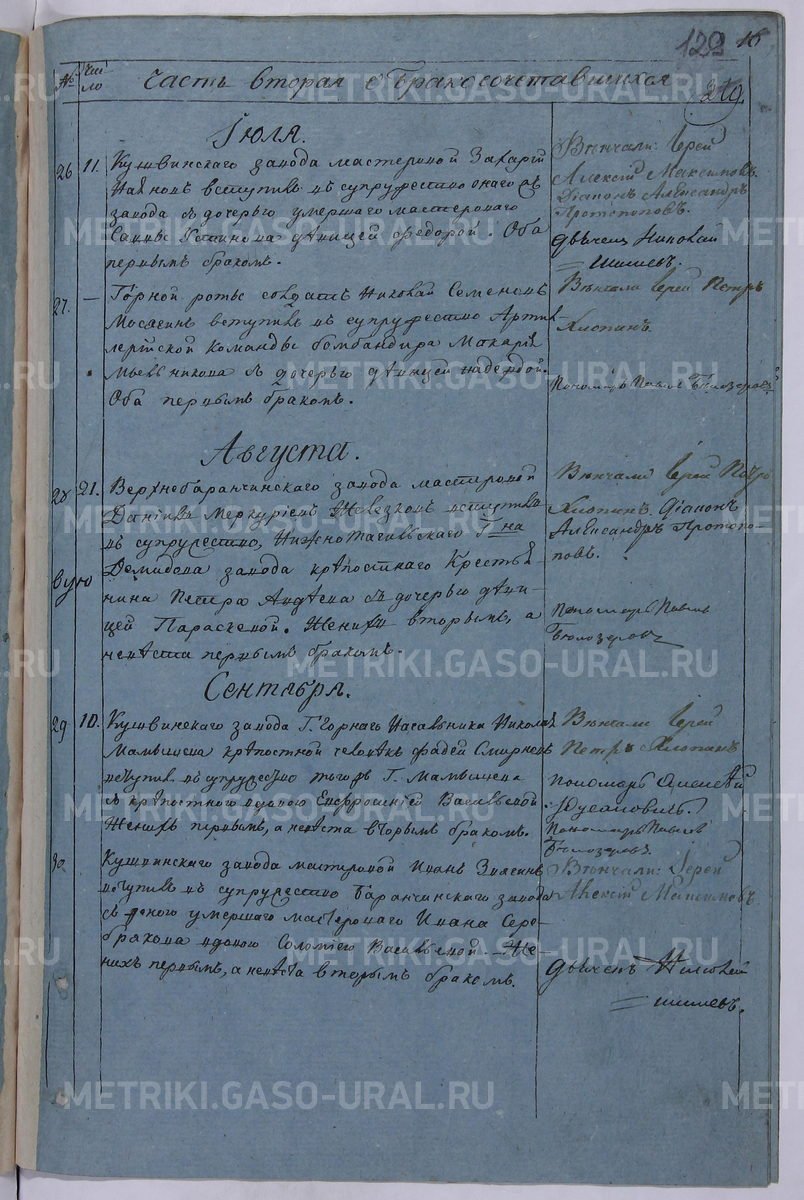 129 16
№ Число Часть вторая о бракосочетавшихся 219.
Іюля.
26 11. Кушвинскаго завода мастеровой Захарій
вступилъ въ супружество онаго жъ
завода съ дочерью умершаго мастероваго
Саввы Устинова дѣвицей Федорой. Оба
первымъ бракомъ.
Вѣнчали: Іерей
Алексій Максимовъ.
Діаконъ Александръ
Протопоповъ.
Дьячекъ Николай
Шишевъ.
27. — Горной роты солдатъ Николай Семеновъ
вступилъ въ супружество Артил
лерійской команды бомбандира Макарія
Мыльникова съ дочерью дѣвицей Надеждой.
Оба первымъ бракомъ.
Вѣнчали Іерей Петръ
Хлопинъ
Пономарь Павелъ Бѣлозеровъ
Августа.
28 21. Верхнебаранчинскаго завода мастеровой
Данила Меркурьевъ вступилъ
въ супружество, Нижнотагильскаго Г-на
Демидова завода крѣпостнаго Крестья
вую
нина Петра съ дочерью дѣви-
цей Параскевой. Женихъ вторымъ, а
невѣста первымъ бракомъ.
Вѣнчали Іерей Петръ
Хлопинъ. Діаконъ
Александръ Протопо-
повъ.
Пономарь Павелъ
Бѣлозеровъ
Сентября.
29 10. Кушвинскаго завода Г. Горнаго Начальника Николая
Мамышева крѣпостной человѣкъ Фадей Смирновъ
вступилъ въ супружество тогожъ Г. Мамышева
съ крѣпостною вдовою Евфросиніей Васильевой
Женихъ первымъ, а невѣста вторымъ бракомъ.
Вѣнчали Іерей
Петръ Хлопинъ
пономарь Алексѣй
Пономарь Павелъ
Бѣлозеровъ.
30 Кушвинскаго завода мастеровой Иванъ
вступилъ въ супружество Баранчинскаго завода
съ женою умершаго мастероваго Ивана Сере-
брякова вдовою Соломіею Васильевой. Же-
нихъ первымъ, а невѣста вторымъ бракомъ.
Вѣнчали: Іерей
Алексій Максимовъ.
Дьячекъ Николай
Шишевъ.
METRIKI.GASO-URAL.RU